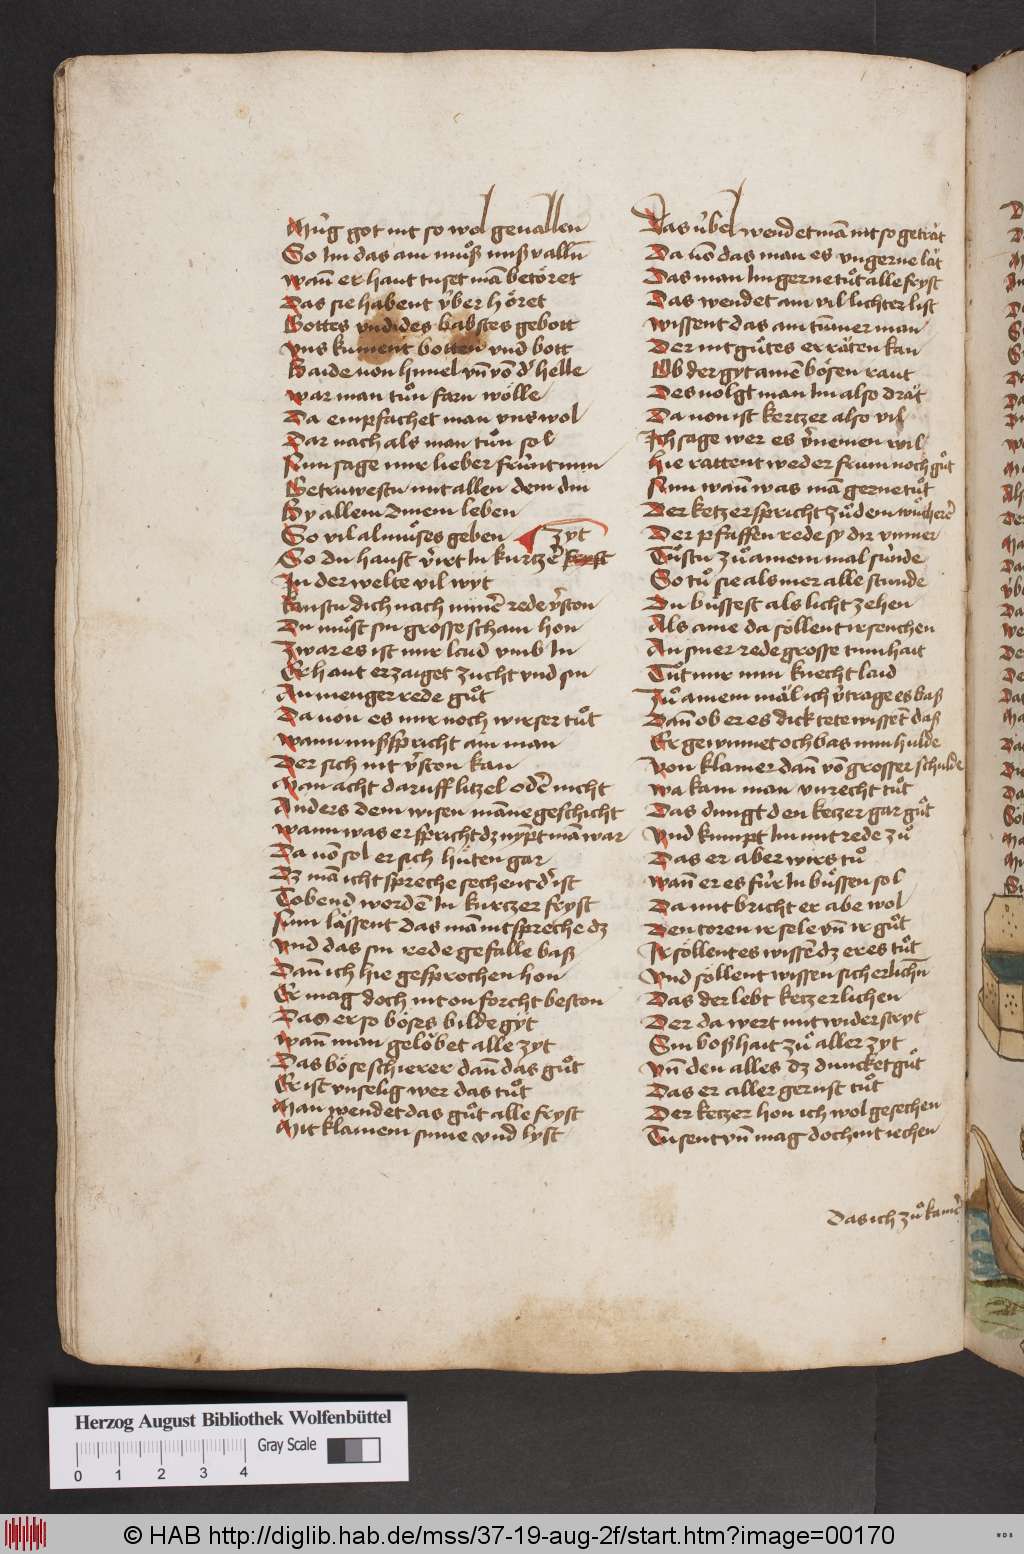 Mug got nit so wol geuallen
So Im das am muͦß mß valln̄
wan̄ er haut tuset mā betoͤret
Das sie habent v̈ber hoͤret
Gottes vnd des babstes gebott
vns kument botten vnd bott
Baide von himel vn̄ vō d' helle
war man tuͦn farn woͤlle
Da empfachet man vns wol
Dar nach als man tuͦn sol
Nun sage mir lieber fru̍nt min
Getruwestu mit allen dem din
By allem dinem leben
So vil almuͦses geben zyt
So du haust v̍irt In kurtze'
In der welte vil wyt
kanstu dich nach minē rede v̍ston
Du muͦst sin grosse scham hon
zwar es ist mir laid vmb In
Er haut erzaiget zucht vnd sin
An menger rede guͦt
Da von es mir noch wirser tuͦt
wann mißspricht am man
Der sich nit v̍ston kan
Man acht daruff litzel odē nicht
Anders dem wisen māne geschicht
wann was er spricht dz nympt mā war
Da vō sol er sich huͤten gar
Dz mā icht spreche sechent d' ist
Tobend wordē In kurtzer fryst
Nun laͤssent das mā nit spreche dz
vnd das sin rede gefalle baß
Dan̄ ich hie gesprochen hon
Er mag doch nit on forcht beston
Das er so boͤses bilde gyt
wan̄ man geloͤbet alle zyt
Das boͤse schierer dan̄ das guͦt
Er ist vnselig wer das tuͦt
Man wendet das guͦt alle fryst
Mit klainem sinne vnd lyst
Das v̈bel wendet mā nit so getraͤt
Da vō das man es vngerne laͤt
Das man Im gerne tuͦt alle fryst
Das wendet am vil lichter list
wissent das am tumer man
Der nit guͦtes erraͤten kan
Ob der gyt ainē boͤsen raut
Des volgt man Im also draͤt
Da von ist kertzer also vil
Ich sage wer es v̍nemen wil
hie rattent weder frum noch guͦt
Nun wan̄ was mā gerne tuͦt
Der ketzer spricht zuͦ dem wuͦcherē
Der pfaffen rede sy dir vnmer
Tuͦstu zuͦ ainem mal su̍nde
So tuͦ sie als mer alle stunde
Du buͤssest als licht zehen
Als aine da soͤllent ir sen chen
An siner rede grosse tumhait
Tuͦt mir min knecht laid
Zuͦ ainem maͤl ich v̍trage es baß
Dan̄ ob er es dick tete wissēt daß
Er gewinnet och bas min hulde
von klainer dan̄ vō grosser schulde
wa kam man vnrecht tuͦt
Das dungt den ketzer gar guͦt
vnd kumpt Im mit rede zuͦ
Das er aber wirs tuͦ
wan̄ er es fu̍r In buͤssen sol
Da mit bricht er abe wol
Den toren ir sele vn̄ ir guͦt
Ir soͤllent es wissē dz er es tuͦt
vnd soͤllent wissen sicherlichn̄
Das der lebt ketzerlichen
Der da wert mit widerstryt
Sin boßhait zuͦ aller zyt
vn̄ den alles dz duncket guͦt
Das er aller gernst tuͦt
Der ketzer hon ich wol gesechen
Tusent vn̄ mag doch nit iechen
das ich zuͦ kainē
Herzog August Bibliothek Wolfenbüttel
Gray Scale
0 1 2 3 4
© HAB http://diglib.hab.de/mss/37-19-aug-2f/start.htm?image=00170